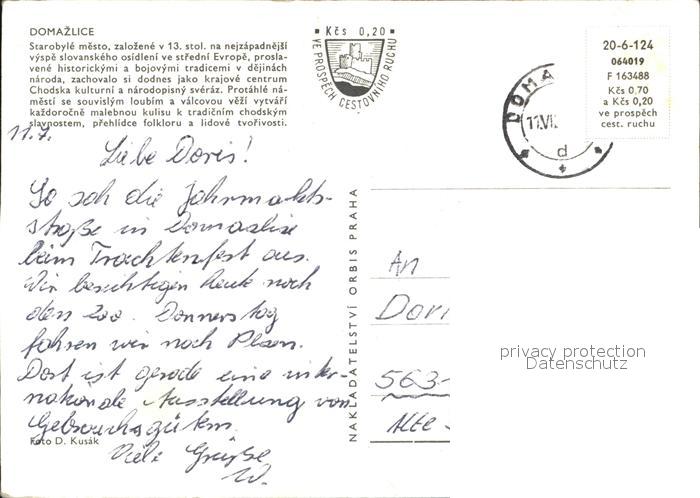 DOMAŽLICE
Starobylé město, založené v 13. stol. na nejzápadnější
výspě slovanského osídlení ve střední Evropě, prosla-
vené historickými a bojovými tradicemi v dějinách
národa, zachovalo si dodnes jako krajové centrum
Chodska kulturní a národopisný svéráz. Protáhlé ná-
městí se souvislým loubím a válcovou věží vytváří
každoročně malebnou kulisu k tradičním chodským
slavnostem, přehlídce folkloru a lidové tvořivosti.
Kčs 0,20
VE PROSPĚCH CESTOVNÍHO RUCHU
20-6-124
064019
F 163488
Kčs 0,70
a Kčs 0,20
ve prospěch
cest. ruchu
DOMA
11.VII
d
11.7.
Liebe Doris!
So sah die Jahrmarkts-
straße in Domazlice
beim Trachtenfest aus.
Wir besichtigen heute noch
den Zoo. Donnerstag
fahren wir nach Plzen.
Dort ist gerade eine inter-
nationale Ausstellung von
Gebrauchsgütern.
Viele Grüße
W.
Foto D. Kusák
NAKLADATELSTVÍ ORBIS PRAHA
An
Dori
563-
Alte
privacy protection
Datenschutz